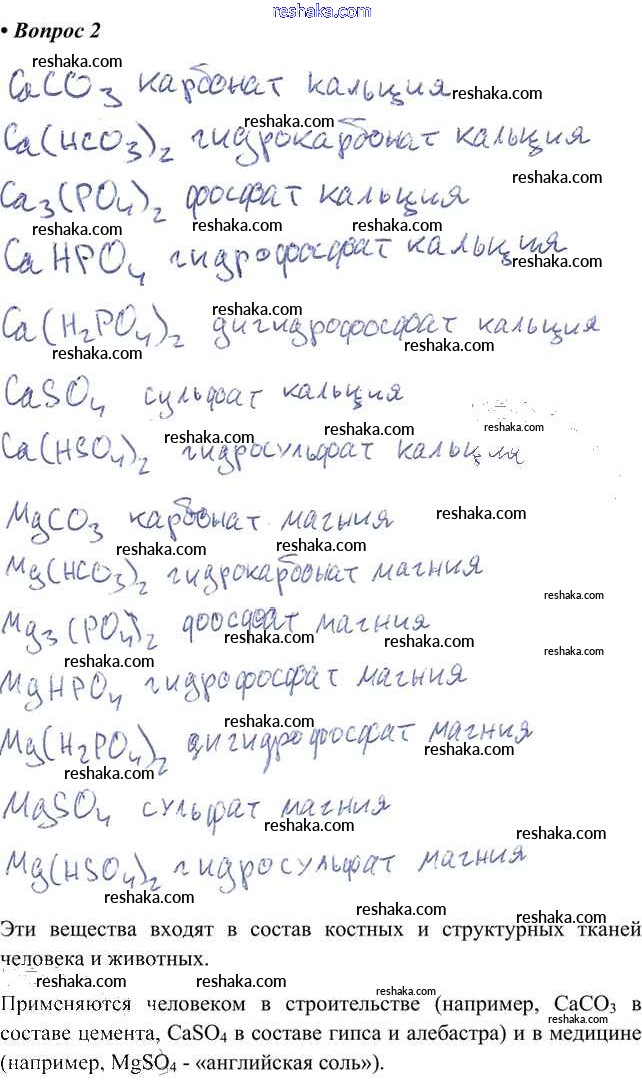 www.reshaka.com
• Вопрос 2
reshaka.com
CaCO3 карбонат кальция reshaka.com
reshaka.com
Ca(HCO3)2 гидрокарбонат кальция
reshaka.com reshaka.com
Ca3(PO4)2 фосфат кальция
reshaka.com reshaka.com reshaka.com
CaHPO4 гидрофосфат кальция
reshaka.com
reshaka.com
Ca(H2PO4)2 дигидрофосфат кальция
reshaka.com reshaka.com
CaSO4 сульфат кальция
reshaka.com reshaka.com
Ca(HSO4)2 гидросульфат кальция
reshaka.com
MgCO3 карбонат магния reshaka.com
reshaka.com reshaka.com
Mg(HCO3)2 гидрокарбонат магния
reshaka.com
Mg3(PO4)2 фосфат магния
reshaka.com reshaka.com
reshaka.com reshaka.com
MgHPO4 гидрофосфат магния
reshaka.com
Mg(H2PO4)2 дигидрофосфат магния
reshaka.com reshaka.com
MgSO4 сульфат магния
reshaka.com reshaka.com
Mg(HSO4)2 гидросульфат магния
reshaka.com reshaka.com
Эти вещества входят в состав костных и структурных тканей
человека и животных.
reshaka.com
Применяются человеком в строительстве (например, CaCO3 в
составе цемента, CaSO4 в составе гипса и алебастра) и в медицине
(например, MgSO4 - «английская соль»).
reshaka.com reshaka.com